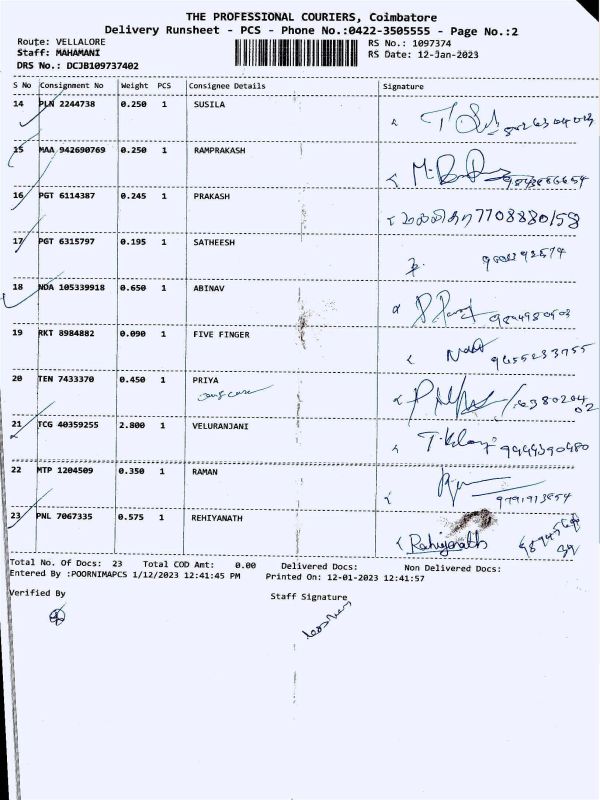 THE PROFESSIONAL COURIERS, Coimbatore
Delivery Runsheet - PCS - Phone No.:0422-3505555 - Page No.:2
Route: VELLALORE RS No.: 1097374
Staff: MAHAMANI RS Date: 12-Jan-2023
DRS No.: DCJB109737402
S No Consignment No Weight PCS Consignee Details Signature
14 PLN 2244738 0.250 1 SUSILA
15 MAA 942690769 0.250 1 RAMPRAKASH
16 PGT 6114387 0.245 1 PRAKASH 7708880158
17 PGT 6315797 0.195 1 SATHEESH
18 NDA 105339918 0.650 1 ABINAV
19 RKT 8984882 0.090 1 FIVE FINGER 9655233755
20 TEN 7433370 0.450 1 PRIYA
21 TCG 40359255 2.800 1 VELURANJANI 9944390480
22 MTP 1204509 0.350 1 RAMAN 9791913654
23 PNL 7067335 0.575 1 REHIYANATH Rehiyanath
Total No. Of Docs: 23 Total COD Amt: 0.00 Delivered Docs: Non Delivered Docs:
Entered By :POORNIMAPCS 1/12/2023 12:41:45 PM Printed On: 12-01-2023 12:41:57
Verified By Staff Signature